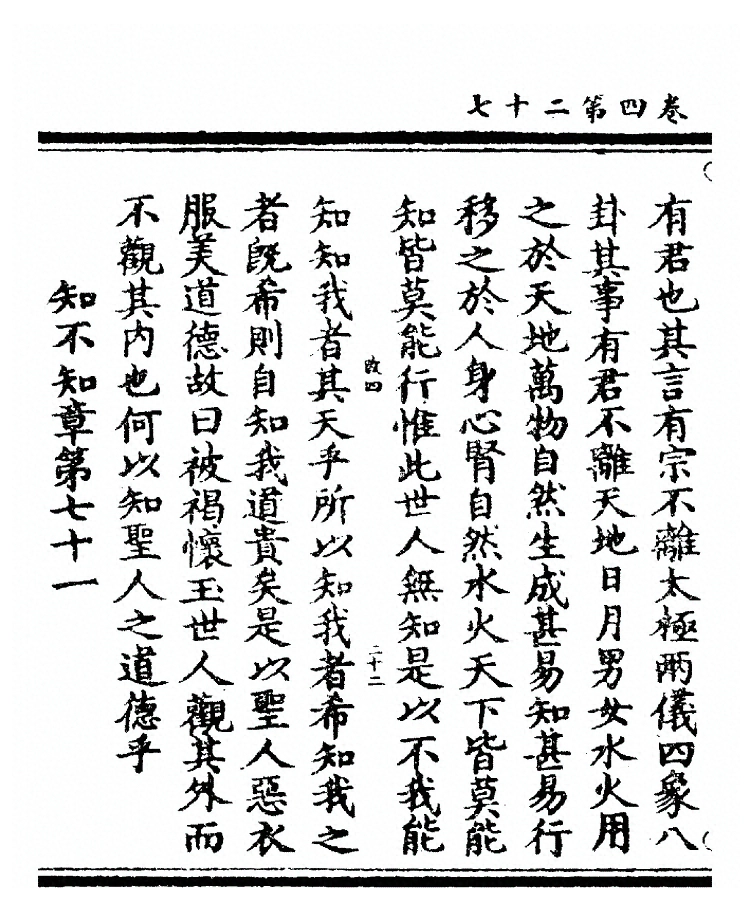 卷四第二十七
有君也其言有宗不離太極兩儀四象八
卦其事有君不離天地日月男女水火用
之於天地萬物自然生成甚易知甚易行
移之於人身心腎自然水火天下皆莫能
知皆莫能行惟此世人無知是以不我能
改四
二十二
知知我者其天乎所以知我者希知我之
者旣希則自知我道貴矣是以聖人惡衣
服美道德故曰被褐懷玉世人觀其外而
不觀其内也何以知聖人之道德乎
知不知章第七十一